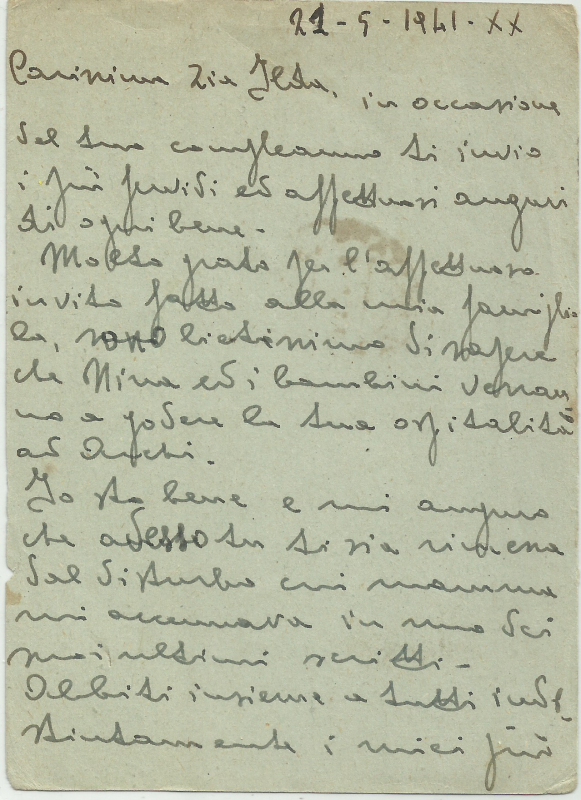 21-9-1941-XX
Carissima Zia Ilda,
in occasione
del tuo compleanno ti invio
i più fervidi ed affettuosi auguri
di ogni bene.
Molto grato per l'affettuoso
invito fatto alla mia famiglio
la, sono lietissimo di sapere
che Nina ed i bambini verran
no a godere la tua ospitalità
ad
Io sto bene e mi auguro
che adesso tu ti sia rimessa
dal disturbo cui mamma
mi accennava in uno dei
suoi ultimi scritti-
Abbiti insieme a tutti indi
stintamente i miei più